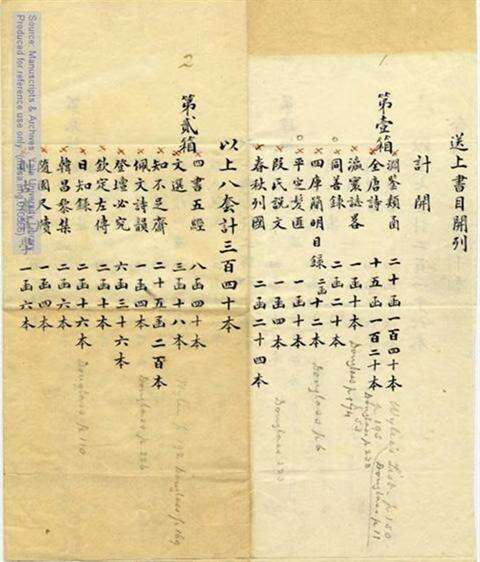 送上書目開列
計開
1
第壹箱
淵鑒類函 二十函一百四十本
Wylie's List p. 150
全唐詩 十五函一百二十本
p. 195 Douglass p. 11
瀛寰誌畧 一函六本
同善錄 二函二十本
四庫簡明目錄 二函十二本
Douglass p. 6
平定髪匪 一函十本
段氏說文 一函八本
Douglass
春秋列國 二函二十四本
以上八套計三百四十本
2
第貳箱
四書五經 八函四十本
文選 三函十八本
p. 192 Douglass p. 169
知不足齋 二十五函二百本
佩文詩韻 一函四本
Douglass p. 226
登壇必究 六函三十六本
欽定左傳 二函十本
日知錄 二函十六本
Douglass p. 110
韓昌黎集 二函六本
隨園尺牘 一函四本
一函六本
Source: Manuscripts & Archives, Yale University Library
Produced for reference use only